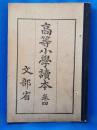 高等小學讀本 卷四
文部省